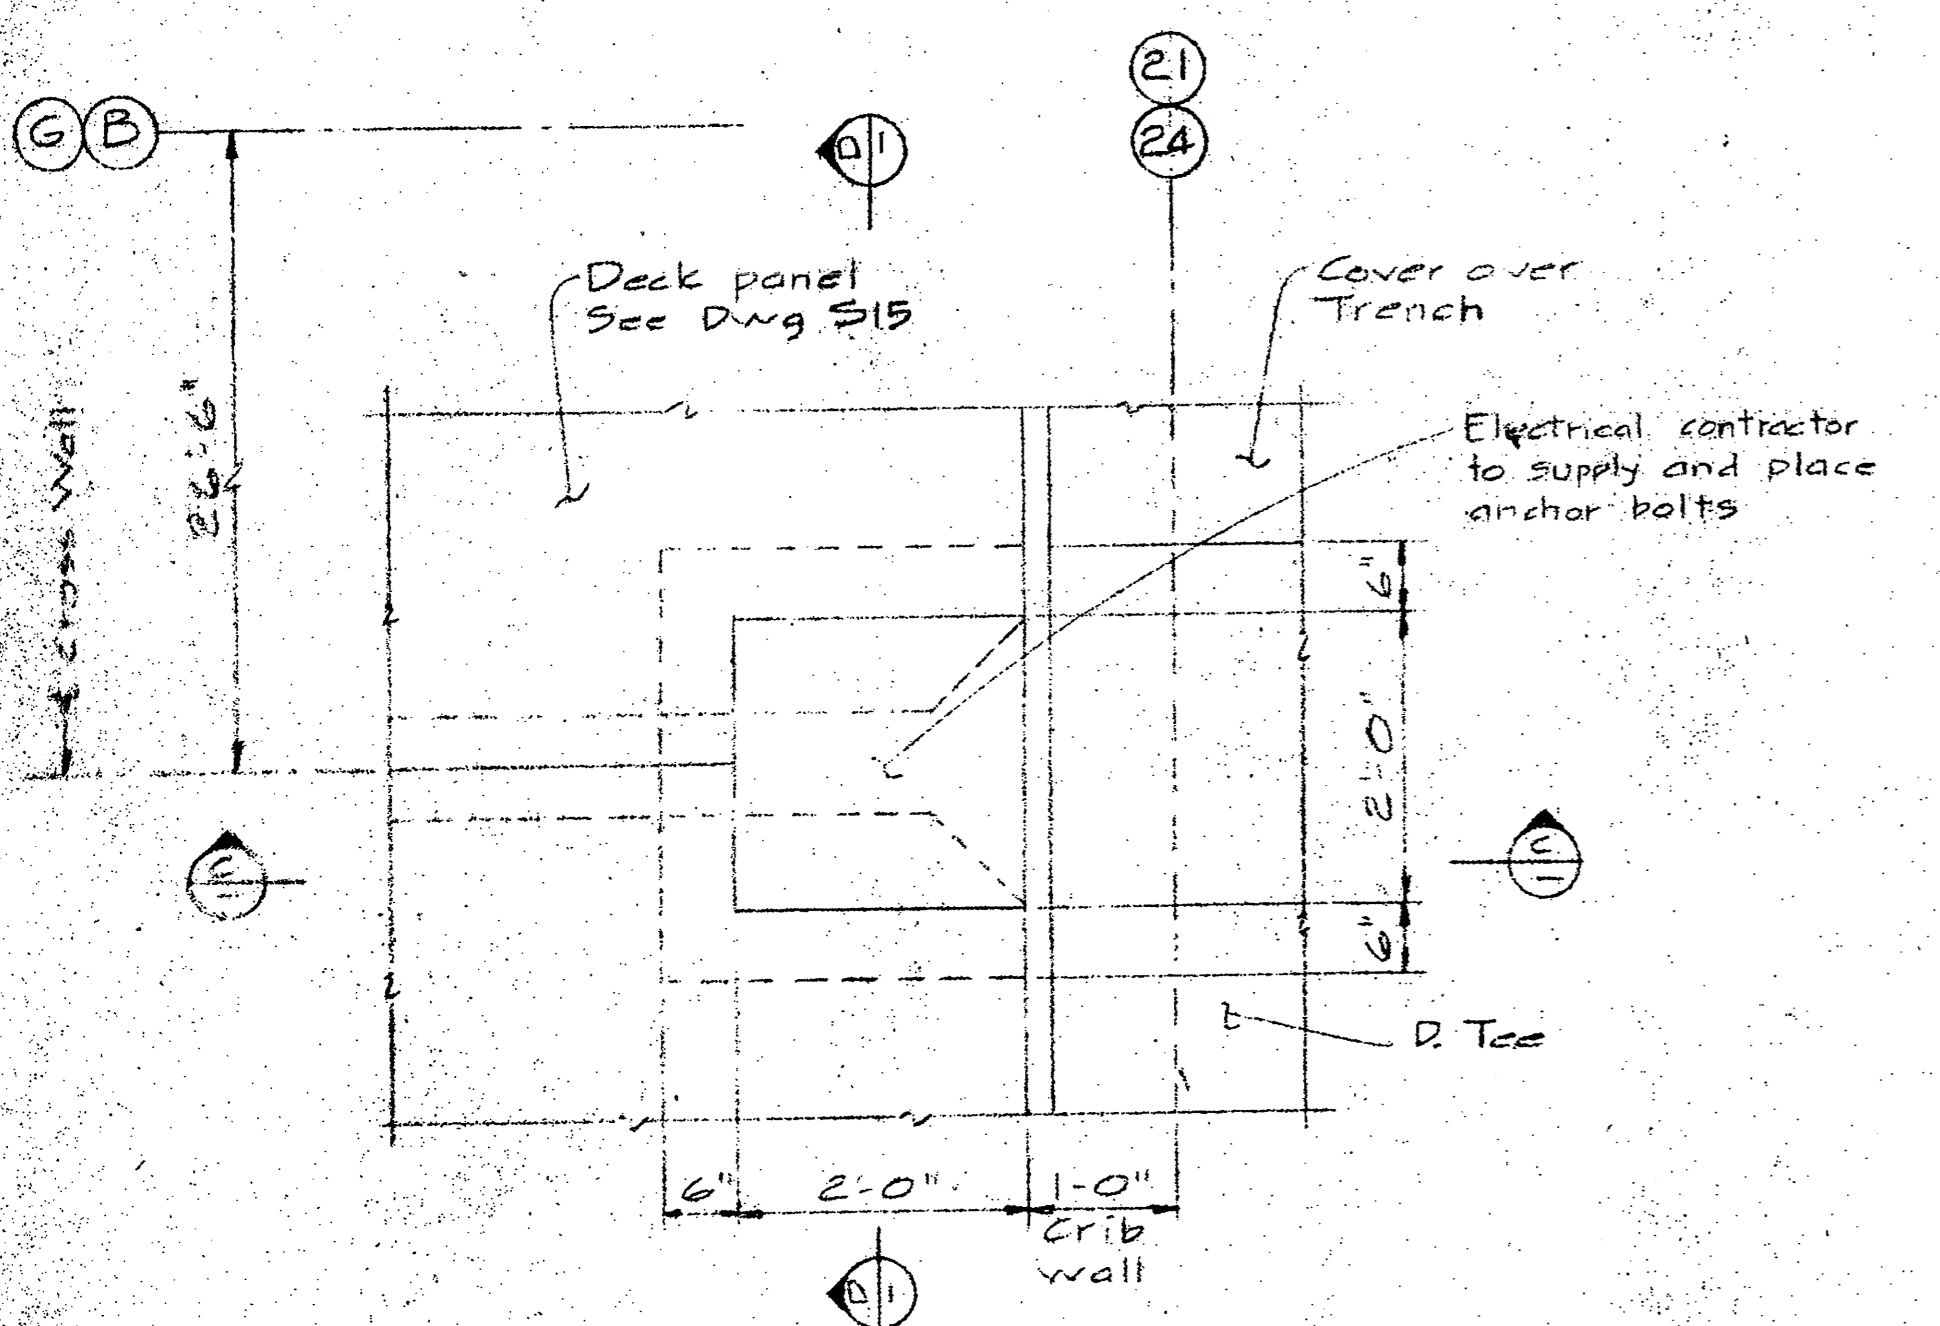 21
G B
24
D 1
Deck panel
See Dwg S15
Cover over
Trench
Electrical contractor
to supply and place
anchor bolts
cross wall
26'-6"
6"
2'-0"
6"
C
C
D. Tee
6"
2'-0"
1-0"
Crib
wall
D 1